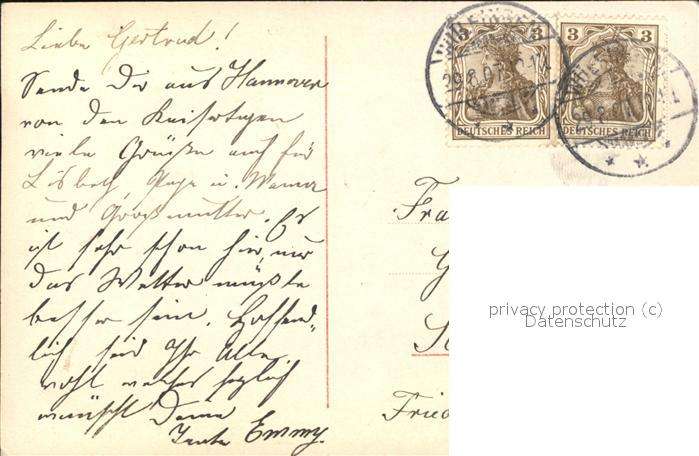 Liebe Gertrud!
Sende Dir aus Hannover
von den Kaisertagen
viele Grüße auch für
Lisbeth, Papa u. Mama
und Großmutter. Es
ist sehr schön hier, nur
das Wetter müßte
besser sein. Hoffent-
lich seid Ihr Alle
wohl welches herzlich
wünscht Deine
Tante Emmy.
3 3
DEUTSCHES REICH DEUTSCHES REICH
29.8.07
Fra
G
Fried
privacy protection (c)
Datenschutz